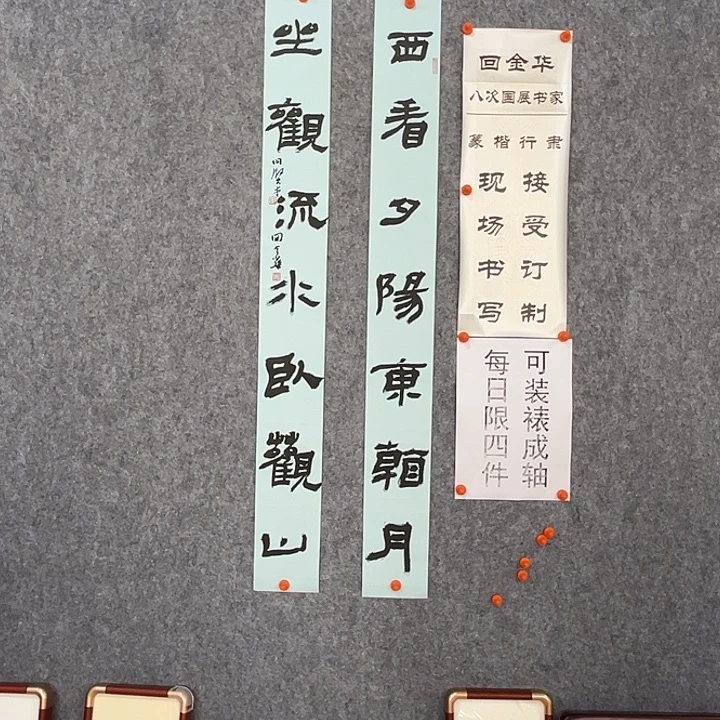 西看夕陽東月
坐觀流水臥觀山
回金華
回金华
八次国展书家
篆楷行隶
接受订制
现场书写
可装裱成轴
每日限四件